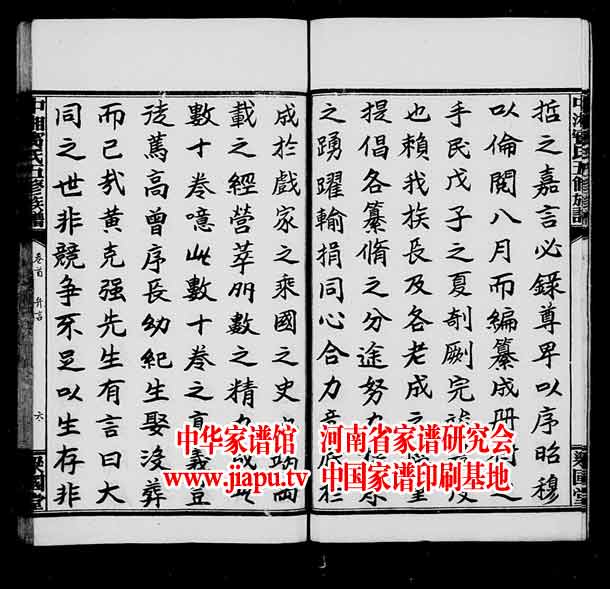 哲之嘉言必錄尊卑以序昭穆
以倫閱八月而編纂成冊之
手民戊子之夏剞劂完
也賴我族長及各老成之望
提倡各纂脩之分途努力
之踴躍輸捐同心合力底於
成於戲家之乘國之史兩
載之經營萃數之精力成此
數十卷噫此數十卷之真義豈
徒篤高曾序長幼紀生娶沒葬
而已哉黃克强先生有言曰大
同之世非競爭不足以生存非
中湘氏五修族譜
卷首 弁言
六
國堂
中华家谱馆 河南省家谱研究会
www.jiapu.tv 中国家谱印刷基地